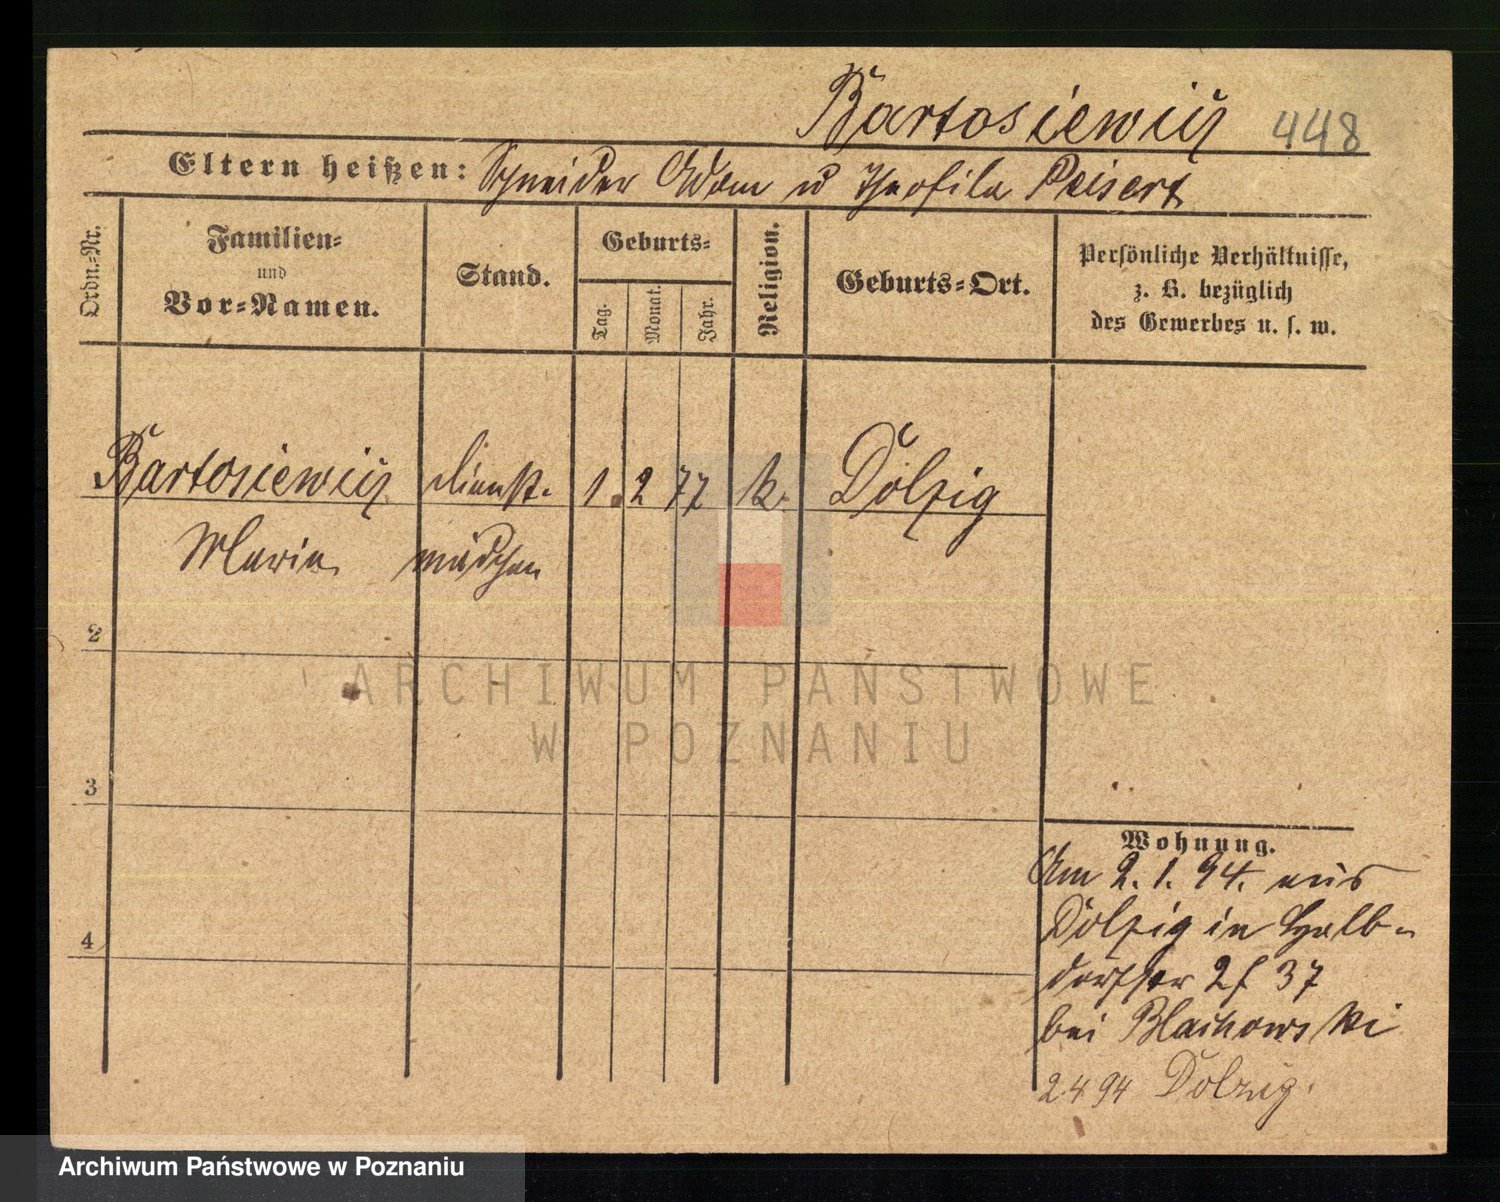 Bartosiewicz 448
Eltern heißen: Schneider Adam u Theofila Peisert
Ordn.-Nr.
Familien-
und
Vor-Namen.
Stand.
Geburts-
Tag.
Monat.
Jahr.
Religion.
Geburts-Ort.
Persönliche Verhältnisse,
z. B. bezüglich
des Gewerbes u. s. w.
Bartosiewicz dienst- 1. 2 77 k. Dolzig
Maria mädchen
2
3
4
Wohnung.
Am 2. 1. 94. aus
Dolzig in Halb-
dorfstr 37
bei Blachowski
2.4 94 Dolzig.
ARCHIWUM PAŃSTWOWE
W POZNANIU
Archiwum Państwowe w Poznaniu